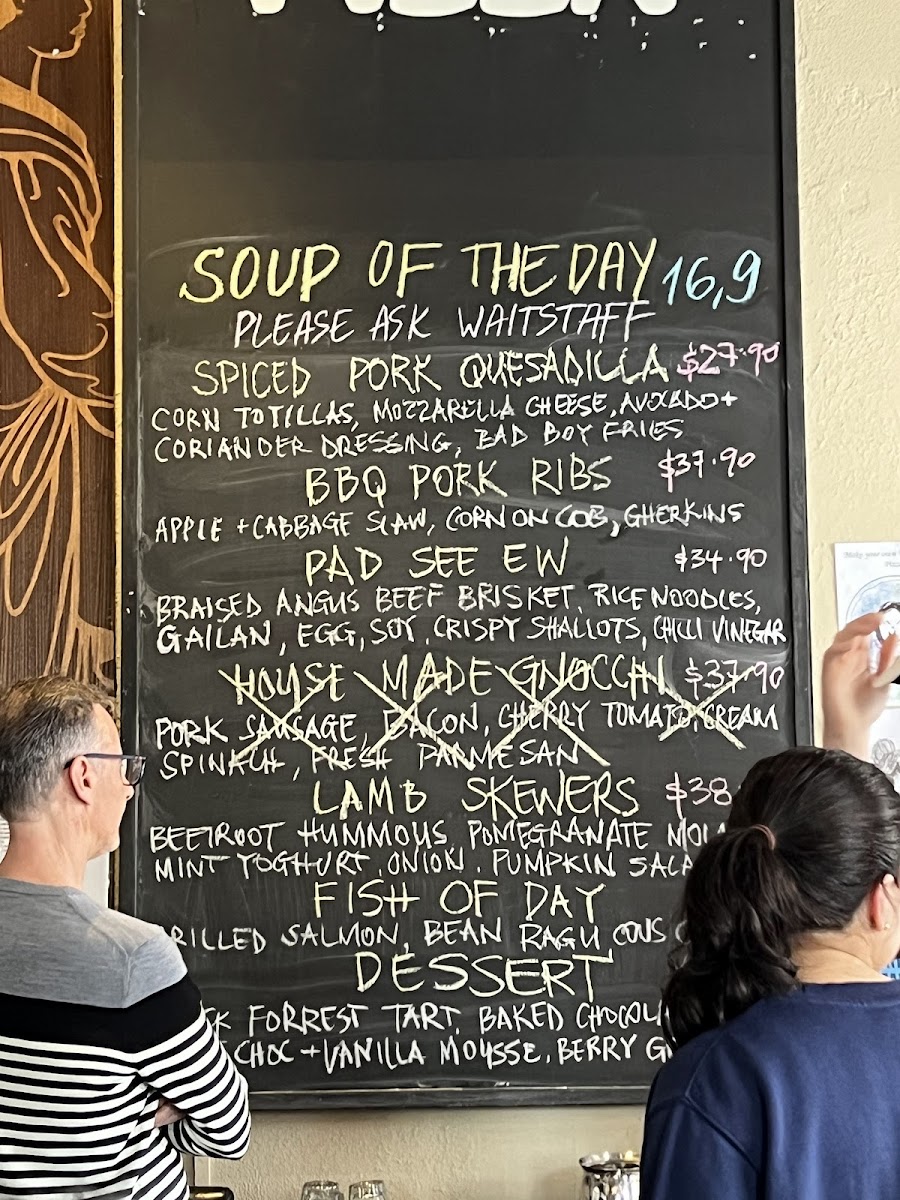 SOUP OF THE DAY 16,9
PLEASE ASK WAITSTAFF
SPICED PORK QUESADILLA $27.90
CORN TOTILLAS, MOZZARELLA CHEESE, AVOCADO +
CORIANDER DRESSING, BAD BOY FRIES
BBQ PORK RIBS $37.90
APPLE + CABBAGE SLAW, CORN ON COB, GHERKINS
PAD SEE EW $34.90
BRAISED ANGUS BEEF BRISKET, RICE NOODLES,
GAILAN, EGG, SOY, CRISPY SHALLOTS, CHILLI VINEGAR
HOUSE MADE GNOCCHI $37.90
PORK SAUSAGE, BACON, CHERRY TOMATO, CREAM
SPINACH, FRESH PARMESAN
LAMB SKEWERS $38
BEETROOT HUMMOUS, POMEGRANATE
MINT YOGHURT, ONION, PUMPKIN
FISH OF DAY
RILLED SALMON, BEAN RAGU, COUS
DESSERT
FORREST TART, BAKED
CHOC + VANILLA MOUSSE, BERRY